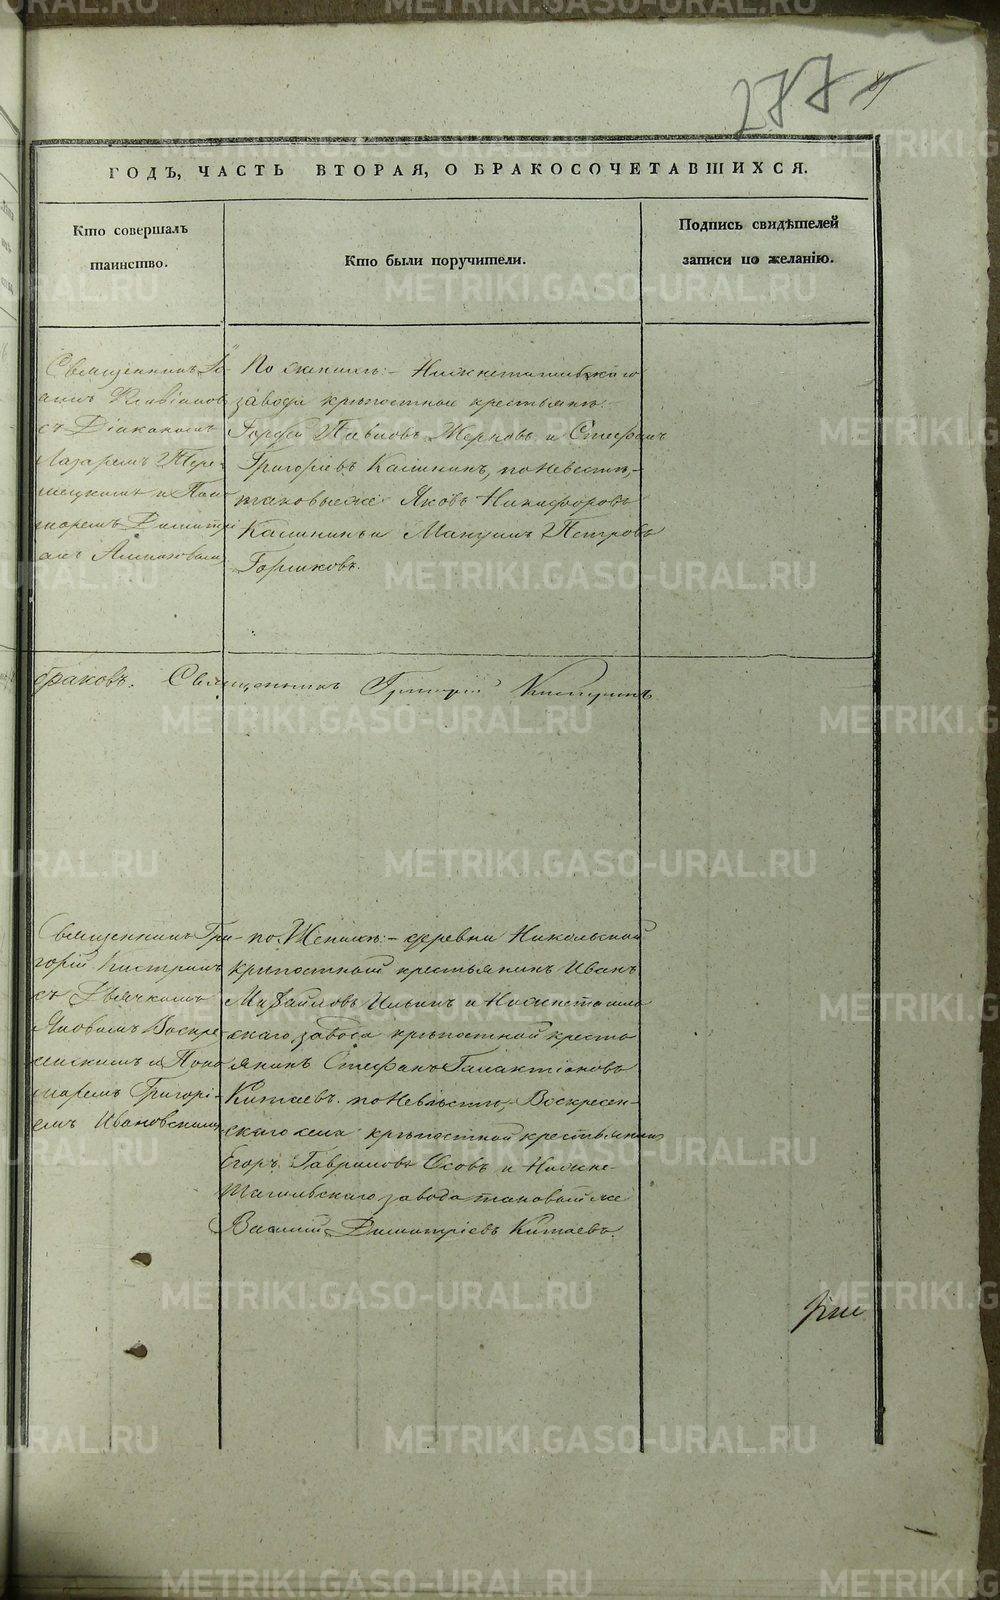 277
ГОДЪ, ЧАСТЬ ВТОРАЯ, О БРАКОСОЧЕТАВШИХСЯ.
Кто совершалъ
таинство.
Кто были поручители.
Подпись свидѣтелей
записи по желанію.
Священникъ Іо-
аннъ Флавіановъ
съ Діакономъ
Лазаремъ
и Поно-
маремъ Димитрі-
емъ
По женихѣ:- Нижнетагильскаго
завода крѣпостные крестьяне:
Гордей Павловъ Жерновъ и Стефанъ
Григоріевъ Калининъ, по невѣстѣ,-
таковые же Яковъ Никифоровъ
Калининъ и Петровъ
Горшковъ.
браковъ. Священникъ Григорій Кистринъ
Священникъ Гри-
горій Кистринъ
съ Дьячкомъ
Яковомъ Воскре-
сенскимъ и Поно-
маремъ Григорі-
емъ Ивановскимъ
по Женихѣ:- деревни Никольской
крѣпостный крестьянинъ Иванъ
Михайловъ Ильинъ и Нижнетагиль-
скаго завода крѣпостной кресть
янинъ Стефанъ Галактіоновъ
Китаевъ. по Невѣстѣ, Воскресен-
скаго села крѣпостной крестьянинъ
Егоръ Гавриловъ Осовъ и Нижне-
Тагильскаго завода таковый же
Василій Димитріевъ Китаевъ.
METRIKI.GASO-URAL.RU